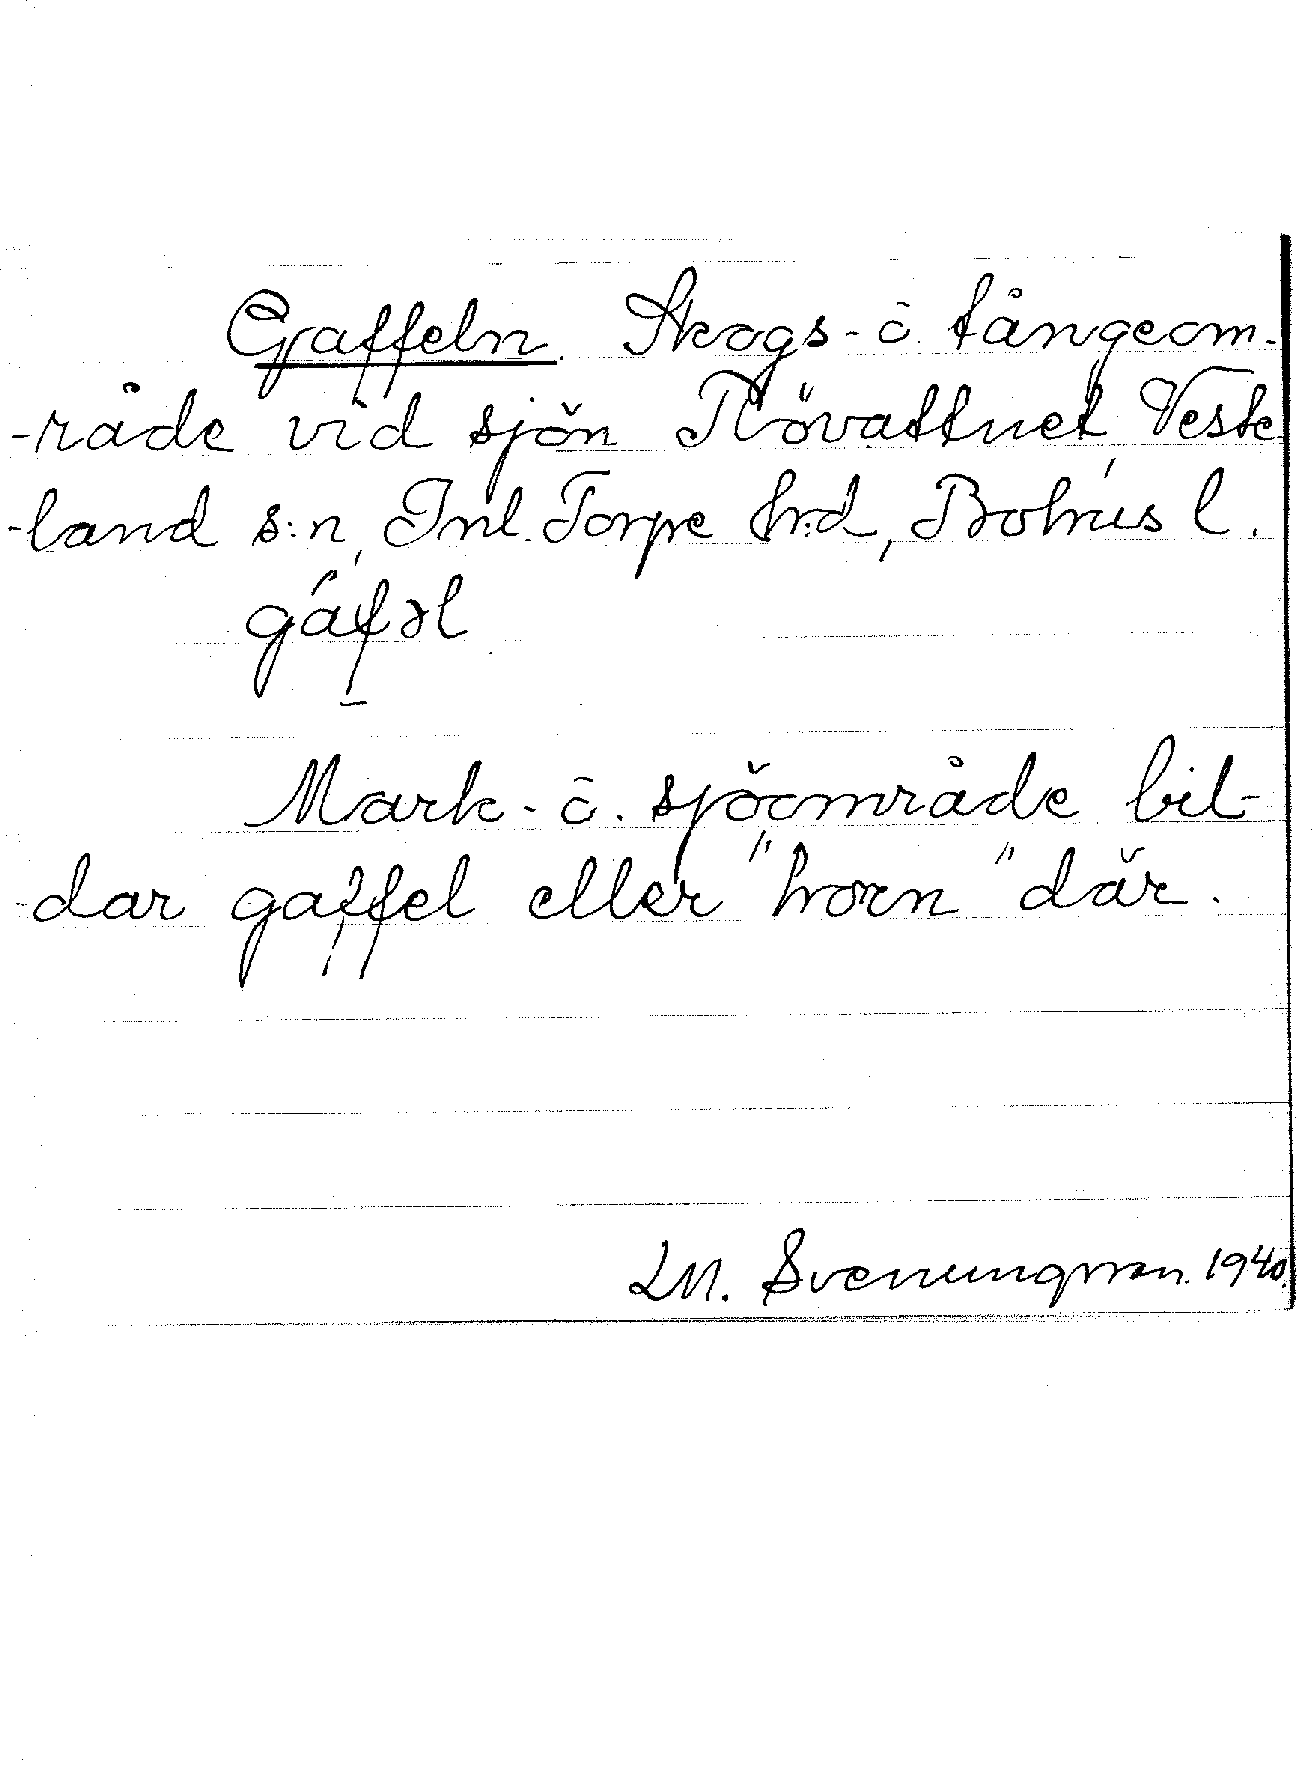 Gaffeln. Skogs- o. tångeom-
-råde vid sjön Rövattnet, Veste
-land s:n, Inl. Torpe hrd, Bohus l.
gáfəl
Mark- o. sjöområde bil-
-dar gaffel eller "horn" där.
M. Svenungsson. 1940.